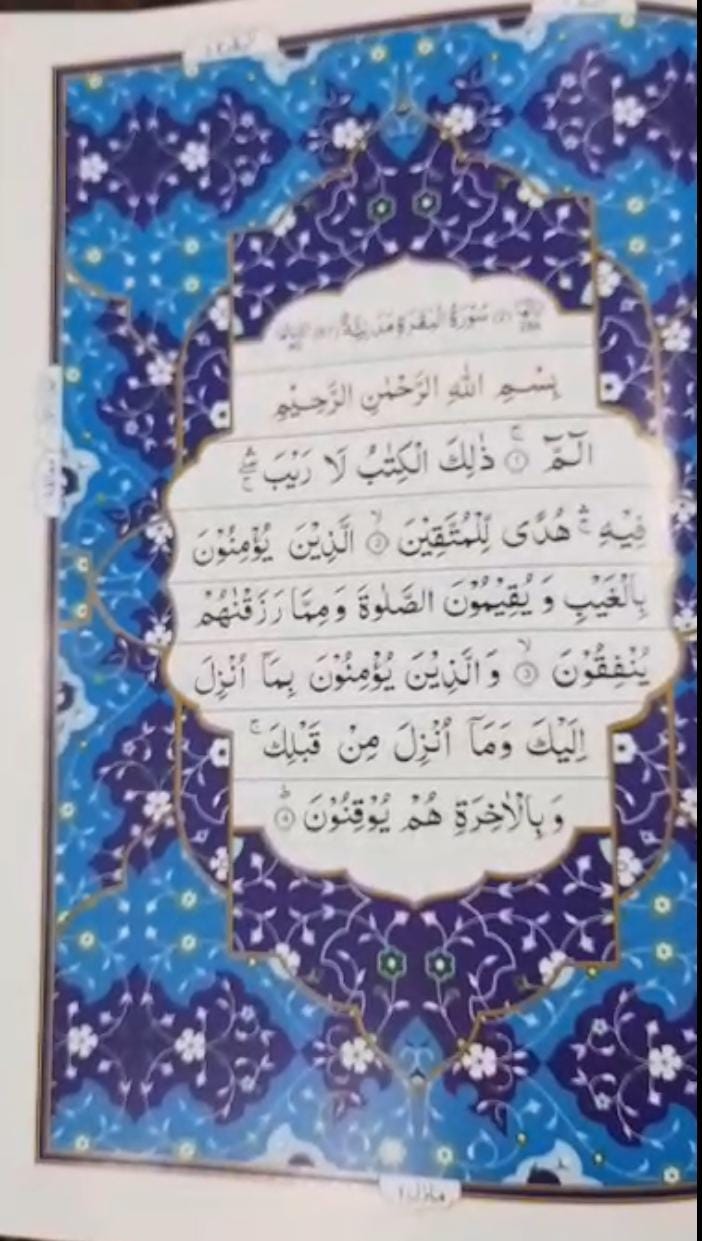 سُوْرَةُ الْبَقَرَةِ مَدَنِيَّةٌ
بِسْمِ اللّٰهِ الرَّحْمٰنِ الرَّحِيْمِ
الٓمّٓ ۚ﴿۱﴾ ذٰلِكَ الْكِتٰبُ لَا رَيْبَ ۛۖۚ
فِيْهِ ۛۚ هُدًى لِّلْمُتَّقِيْنَ ۙ﴿۲﴾ الَّذِيْنَ يُؤْمِنُوْنَ
بِالْغَيْبِ وَ يُقِيْمُوْنَ الصَّلٰوةَ وَ مِمَّا رَزَقْنٰهُمْ
يُنْفِقُوْنَ ۙ﴿۳﴾ وَ الَّذِيْنَ يُؤْمِنُوْنَ بِمَاۤ اُنْزِلَ
اِلَيْكَ وَمَاۤ اُنْزِلَ مِنْ قَبْلِكَ ۚ
وَ بِالْاٰخِرَةِ هُمْ يُوْقِنُوْنَ ؕ﴿۴﴾